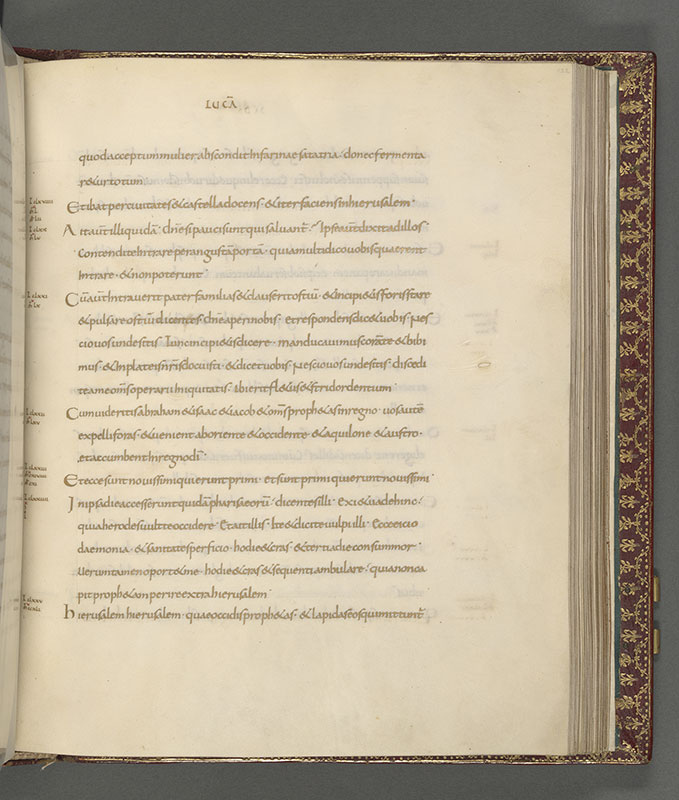 LUCĀ
quod acceptum mulier abscondit in farinae sata tria · donec fermenta
retur totum
Et ibat per civitates et castella docens · et iter faciens in hierusalem ·
Ait aut̄ illi quidā · dn̄e si pauci sunt qui salvant̄ · Ipse aut̄ dixit ad illos
Contendite intrare per angustā portā · quia multi dico vobis quaerent
Intrare · et non poterunt
Cū aut̄ intraverit pater familias et clauserit ostiū · et incipietis foris stare
et pulsare ostiū dicentes · dn̄e aperi nobis · et respondens dicet vobis · Nes
cio vos unde estis · Tunc incipietis dicere · manducavimus corā te et bibi
mus · et in plateis nr̄is docuisti · et dicet vobis · Nescio vos unde estis · discedi
te a me om̄s operarii iniquitatis · Ibi erit fletus et stridor dentium ·
Cum videritis abraham et isaac et iacob et om̄s prophetas in regno · vos autē
expelli foras · et venient ab oriente et occidente · et aquilone et austro ·
et accumbent in regno dī
Et ecce sunt novissimi qui erunt primi · et sunt primi qui erunt novissimi ·
In ipsa die accesserunt quidā pharisaeorū · dicentes illi · Exi et vade hinc ·
quia herodes vult te occidere · Et ait illis · Ite et dicite vulpi illi · Ecce eicio
daemonia · et sanitates perficio · hodie et cras · et tertia die consummor ·
Verumtamen oportet me · hodie et cras et sequenti ambulare · quia non ca
pit prophetam perire extra hierusalem ·
hierusalem hierusalem · quae occidis prophetas · et lapidas eos qui mittunt̄